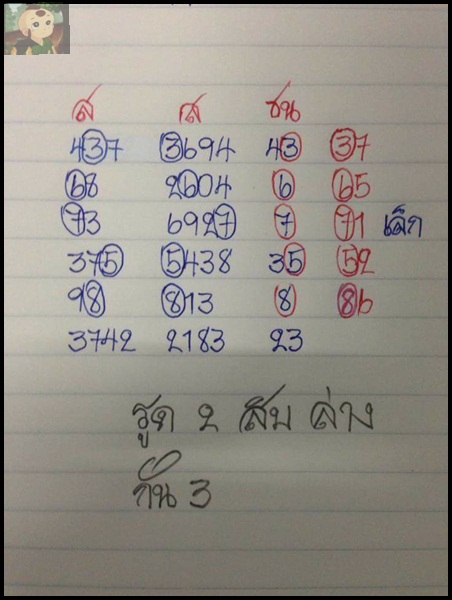 ส ส ชน
437 3694 43 37
68 2604 6 65
73 6927 7 71 เล็ก
375 5438 35 52
98 813 8 86
3742 2183 23
รูด 2 สิบ ล่าง
กัน 3